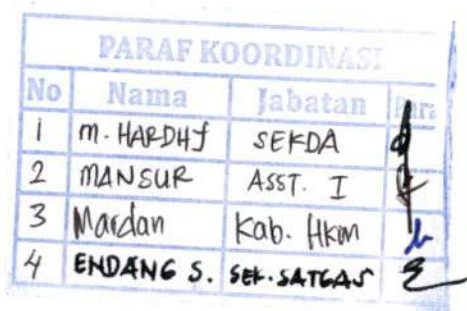 PARAF KOORDINASI
No Nama Jabatan Para
1 M. HARDHY SEKDA
2 MANSUR ASST. I
3 Mardan Kab. Hkm
4 ENDANG S. SEK. SATGAS